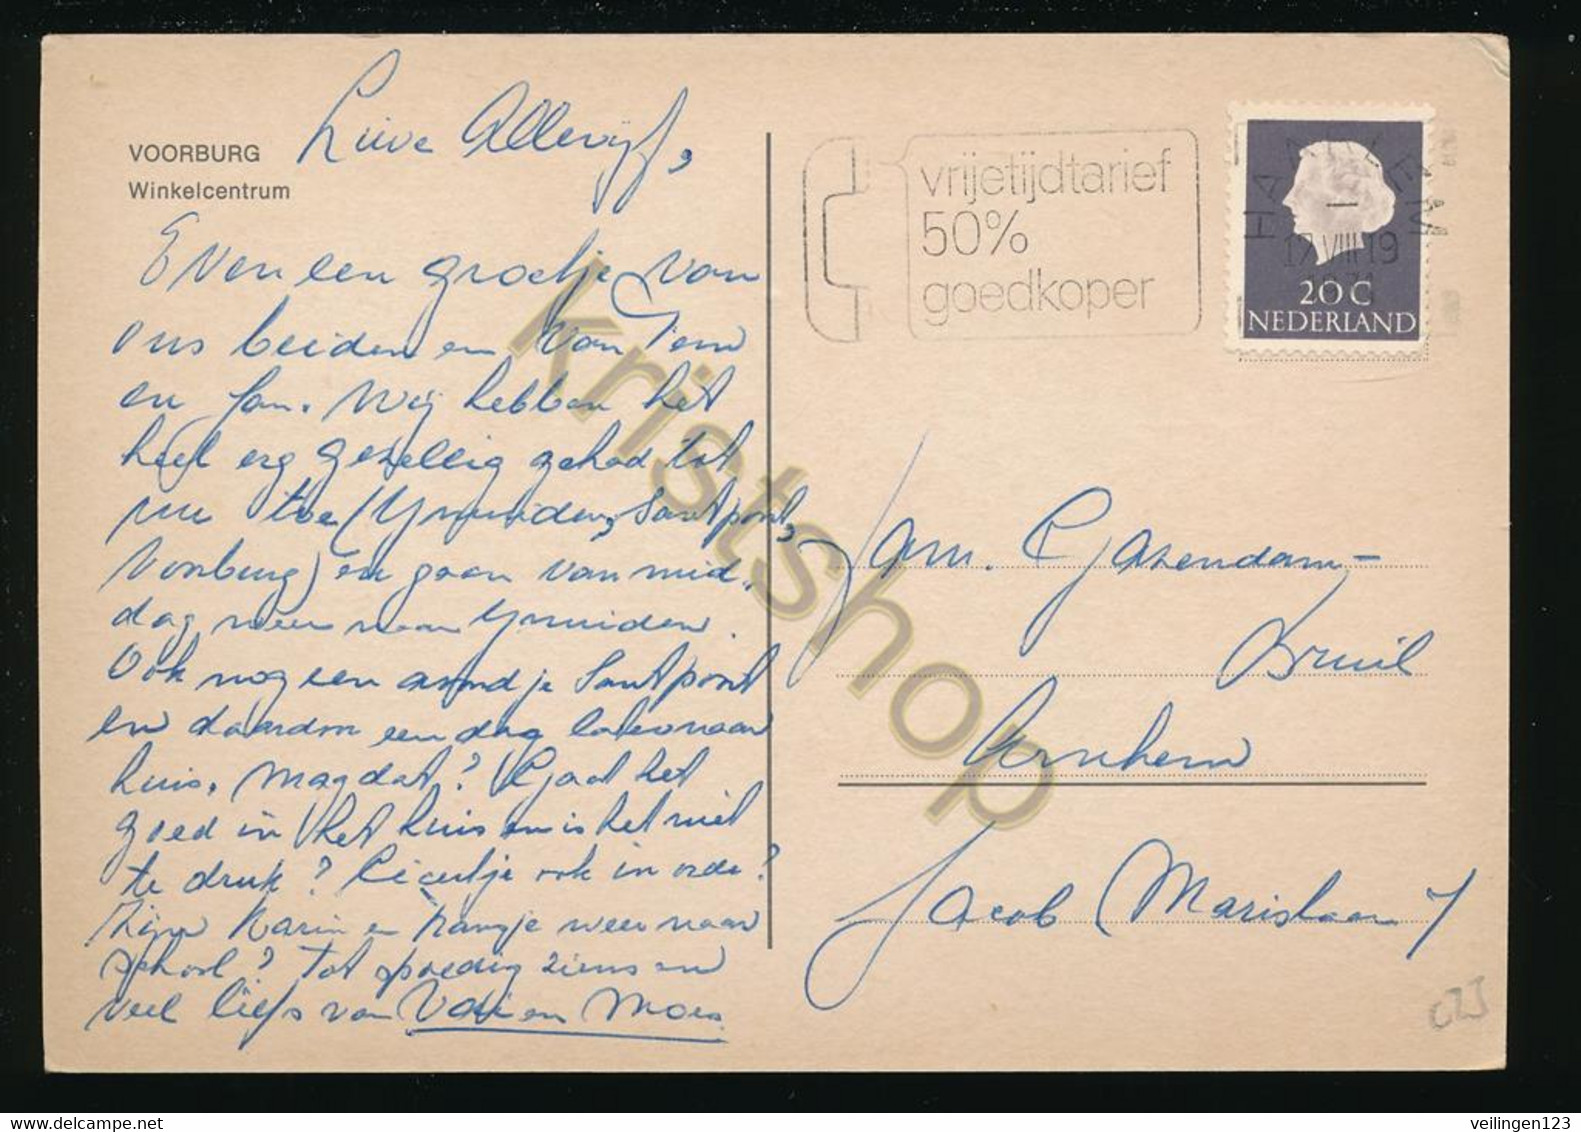 VOORBURG
Winkelcentrum
Lieve Allevijf,
Even een groetje van
ons beiden en van Tem
en Jan. Wij hebben het
heel erg gezellig gehad tot
nu toe (Ymuiden, Santpoort,
Voorburg) en gaan vanmid-
dag weer naar Ymuiden.
Ook nog een avondje Santpoort
en daarom een dag later naar
huis. Mag dat? Gaat het
goed in het huis en is het niet
te druk? Beertje ook in orde?
Zijn Karin en Hansje weer naar
school? Tot spoedig ziens en
veel liefs van Va en Moes
vrijetijdtarief
50%
goedkoper
HAARLEM
17.VIII.19
1971
20 C
NEDERLAND
Fam. Gazendam-
Bruil
Arnhem
Jacob Marislaan 7
kristshop
veilingen123